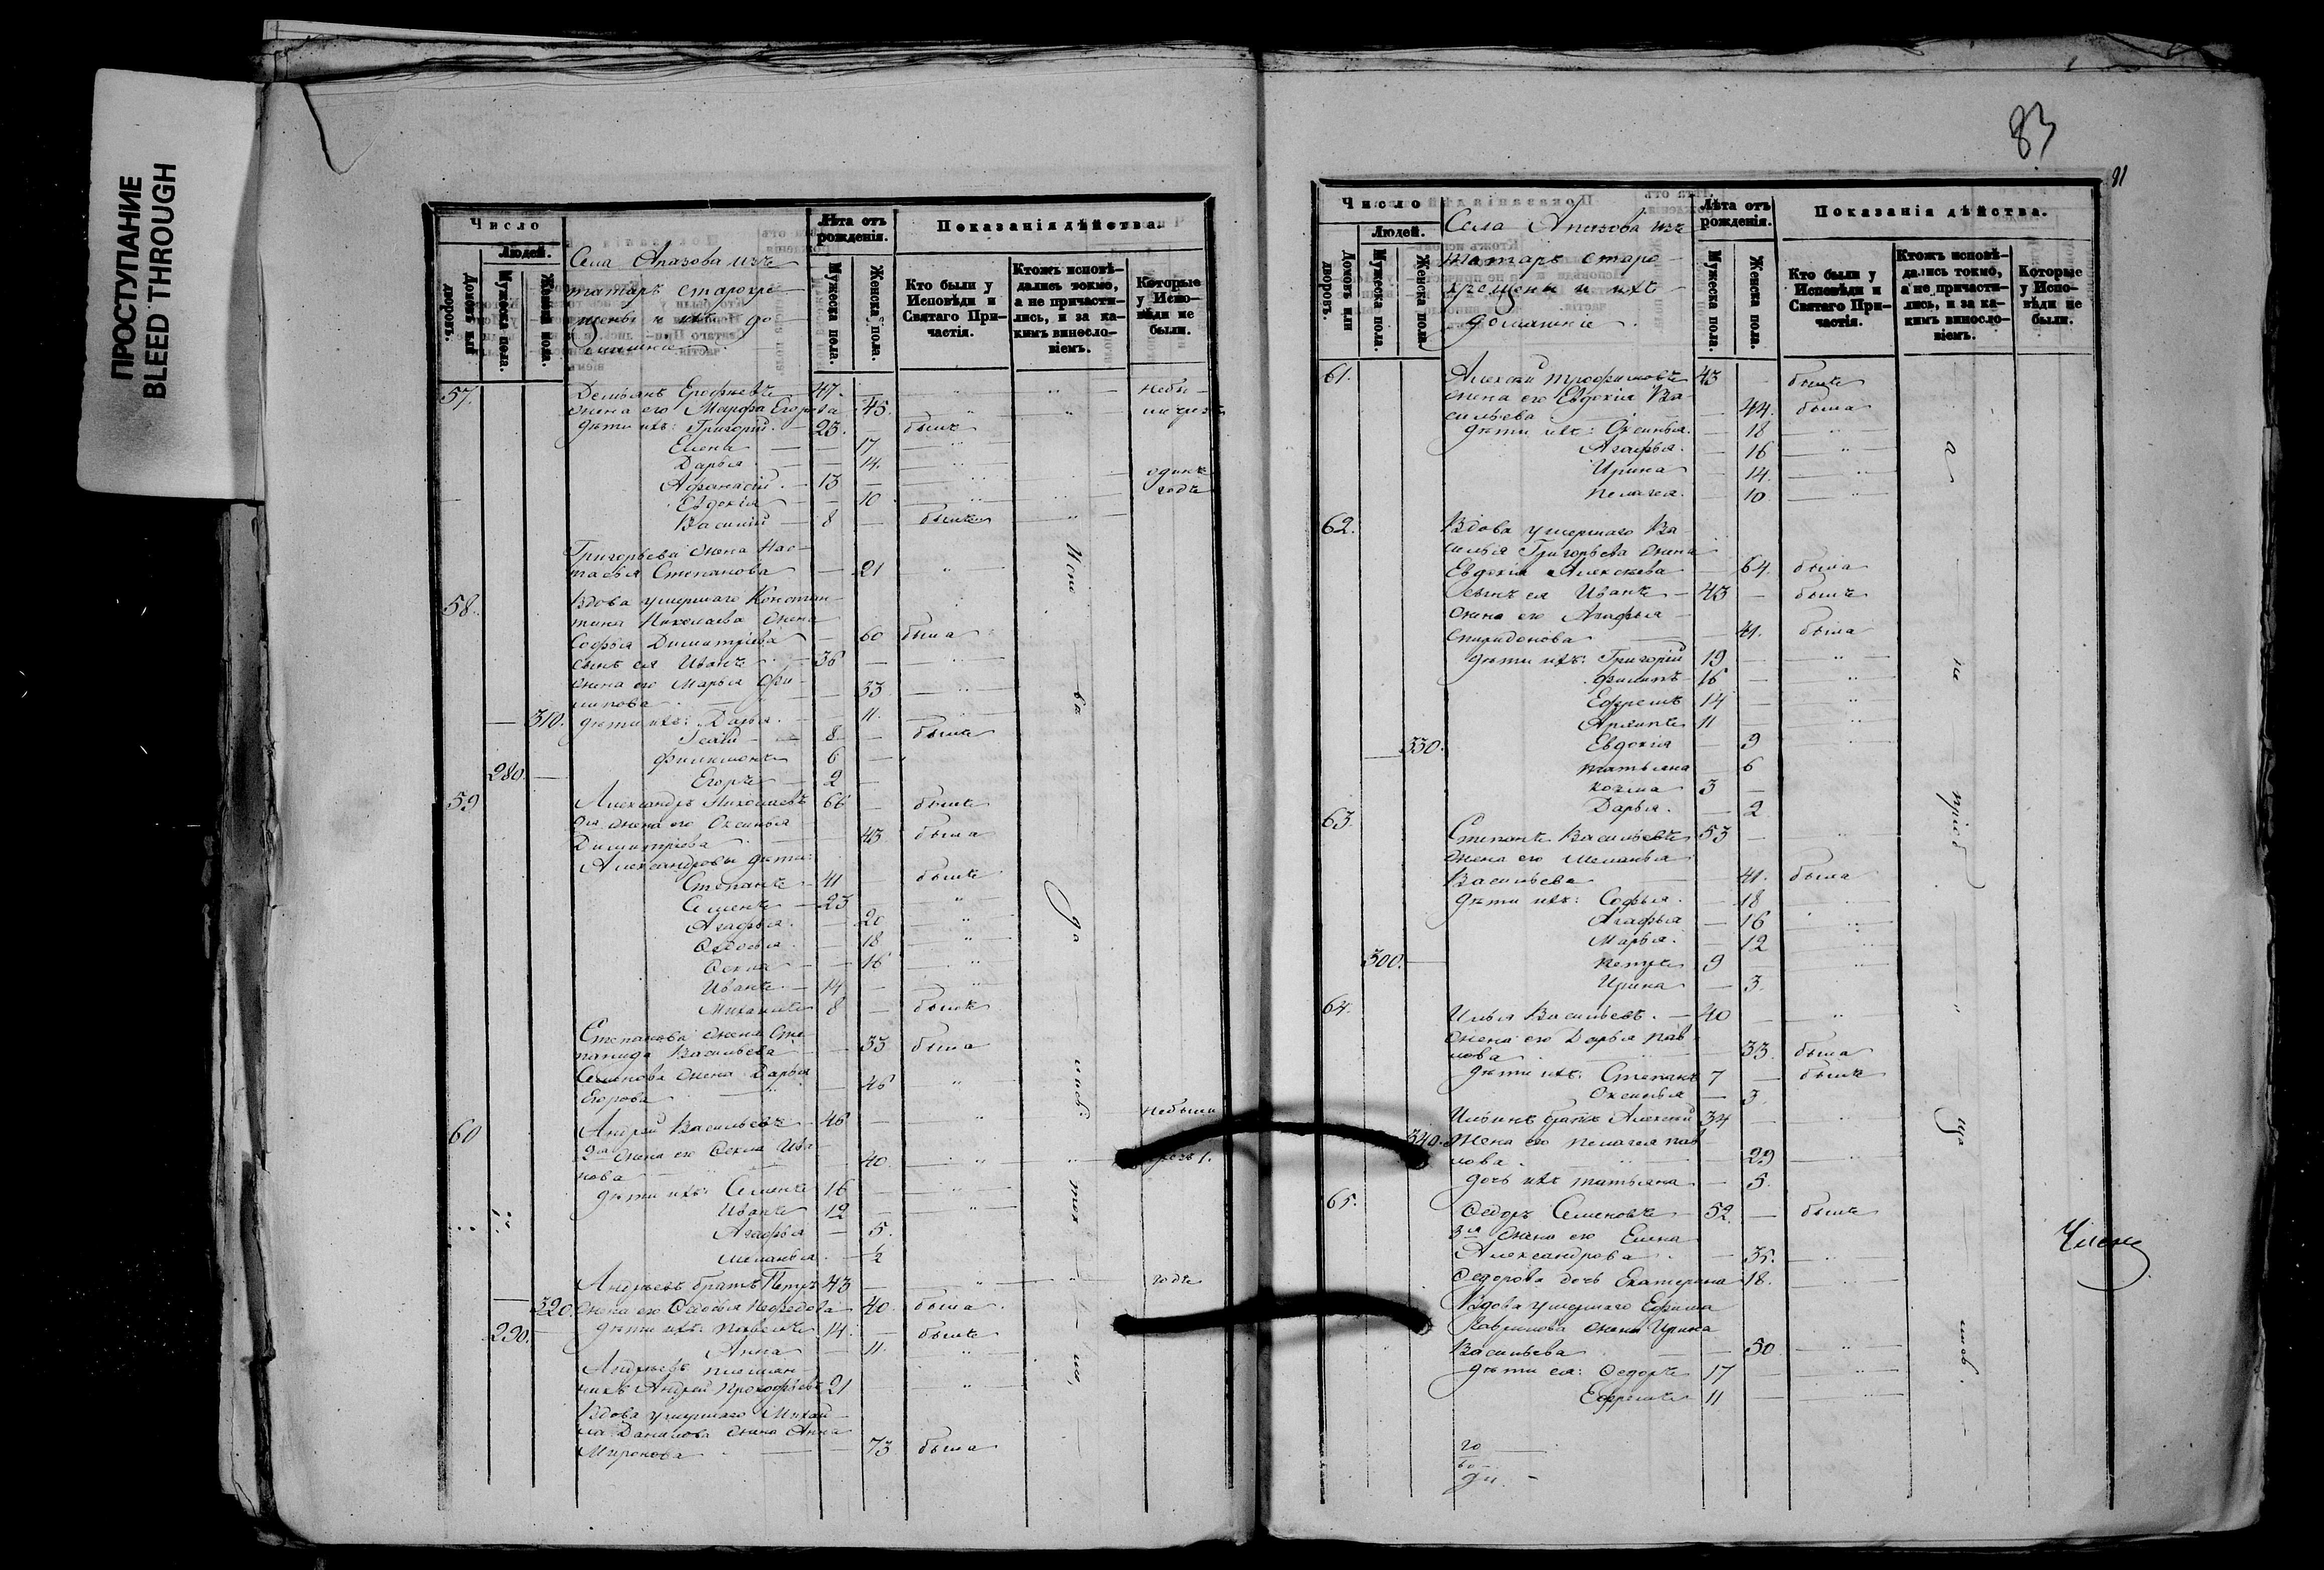 ПРОСТУПАНИЕ
BLEED THROUGH
Число
Людей.
Домовъ или дворовъ.
Мужеска пола.
Женска пола.
Села Апазова изъ
татаръ старокре-
щены и ихъ до-
машніе
Лѣта отъ рожденія.
Мужеска пола.
Женска пола.
Показанія дѣйства.
Кто были у Исповѣди и Святаго При-частія.
Ктожъ исповѣ-дались токмо, а не причасти-лись, и за ка-кимъ виносло-віемъ.
Которые у Испо-вѣди не были.
57. Демьянъ Ерофѣевъ 47. небы-
жена его Марфа Егорова 45.
дѣти ихъ: Григорій 23. былъ
Елена 17
Дарья 14.
Афанасій 13 одинъ
Евдокія 10 годъ
Василій 8 былъ
Григорьева жена Нас-
тасья Степанова 21
58. Вдова умершаго Констан-
тина Николаева жена
Софья Димитріева 60 была
сынъ ея Иванъ 36
жена его Марья Фи-
липова 33
310. дѣти ихъ: Дарья 11.
8 былъ
Филимонъ 6
280. Егоръ 2
59 Александръ Николаевъ 66 былъ
2я жена его Оксинья
Димитріева 43 была
Александровы дѣти:
Степанъ 41 былъ
Семенъ 23
Агафья 20
Ѳедосья 18
Ѳекла 16
Иванъ 14
Михаилъ 8 былъ
Степанова жена Сте-
панида Васильева 33 была
Семенова жена Дарья
Егорова
60 Андрей Васильевъ 46 небыли
2я жена его Ѳекла Ива-
нова 40. 1.
дѣти ихъ: Семенъ 16
Иванъ 12
Агафья 5.
Меланья
Андреевъ братъ Петръ 43 годъ
320. жена его Ѳедосья 40. была
290. дѣти ихъ: 14. былъ
Анна 11.
Андреевъ племян-
никъ Андрей Прокофьевъ 21
Вдова умершаго Михаи-
ла Данилова жена Анна
Миронова 73 была
83
81
Число
Людей.
Домовъ или дворовъ.
Мужеска пола.
Женска пола.
Села Апазова изъ
татаръ старо-
крещены и ихъ
домашніе
Лѣта отъ рожденія.
Мужеска пола.
Женска пола.
Показанія дѣйства.
Кто были у Исповѣди и Святаго При-частія.
Ктожъ исповѣ-дались токмо, а не причасти-лись, и за ка-кимъ виносло-віемъ.
Которые у Испо-вѣди не были.
61. Алексѣй Трофимовъ 43 былъ
жена его Евдокія Ва-
сильева 44. была
дѣти ихъ: Оксинья 18
Агафья 16
Ирина 14.
Пелагея 10
62. Вдова умершаго Ва-
силья Григорьева жена
Евдокія Алексѣева 64. была
сынъ ея Иванъ 43 былъ
жена его Агафья
Спиридонова 41. была
дѣти ихъ: Григорій 19
Филипъ 16
Ефремъ 14
Архипъ 11
330. Евдокія 9
Татьяна 6
Козма 3
Дарья 2
63. Степанъ Васильевъ 53
жена его Меланья
Васильева 41. была
дѣти ихъ: Софья 18
Агафья 16
Марья 12
300. Петръ 9
Ирина 3.
64. Илья Васильевъ 40
жена его Дарья Пав-
лова 33. была
дѣти ихъ: Степанъ 7 былъ
Оксинья 3.
Ильинъ братъ Алексѣй 34
340. жена его Пелагея Пав-
лова 29
дочь ихъ Татьяна 5.
65. Ѳедоръ Семеновъ 52. былъ
3я жена его Елена
Александрова 35.
Ѳедорова дочь Екатерина 18.
Вдова умершаго Ефима
Гаврилова жена Ирина
Васильева 50
дѣти ея: Ѳедоръ 17
Ефремъ 11
Членъ